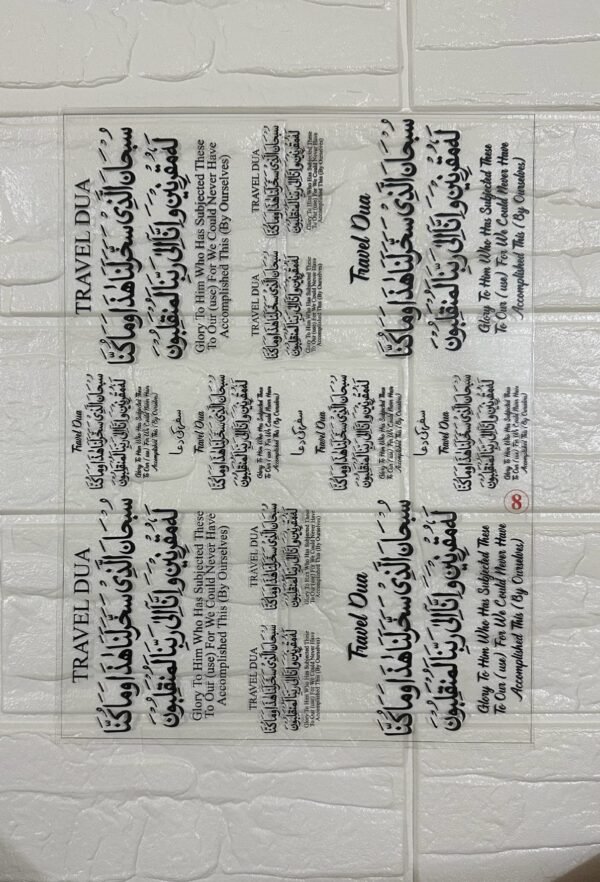 TRAVEL DUA
سُبْحَانَ الَّذِىْ سَخَّرَ لَنَا هٰذَا وَمَا كُنَّا
لَهُ مُقْرِنِيْنَ وَاِنَّا اِلٰى رَبِّنَا لَمُنْقَلِبُوْنَ
Glory To Him Who Has Subjected These
To Our (use) For We Could Never Have
Accomplished This (By Ourselves)
TRAVEL DUA
سُبْحَانَ الَّذِىْ سَخَّرَ لَنَا هٰذَا وَمَا كُنَّا
لَهُ مُقْرِنِيْنَ وَاِنَّا اِلٰى رَبِّنَا لَمُنْقَلِبُوْنَ
Glory To Him Who Has Subjected These
To Our (use) For We Could Never Have
Accomplished This (By Ourselves)
TRAVEL DUA
سُبْحَانَ الَّذِىْ سَخَّرَ لَنَا هٰذَا وَمَا كُنَّا
لَهُ مُقْرِنِيْنَ وَاِنَّا اِلٰى رَبِّنَا لَمُنْقَلِبُوْنَ
Glory To Him Who Has Subjected These
To Our (use) For We Could Never Have
Accomplished This (By Ourselves)
Travel Dua
سُبْحَانَ الَّذِىْ سَخَّرَ لَنَا هٰذَا وَمَا كُنَّا
لَهُ مُقْرِنِيْنَ وَاِنَّا اِلٰى رَبِّنَا لَمُنْقَلِبُوْنَ
Glory To Him Who Has Subjected These
To Our (use) For We Could Never Have
Accomplished This (By Ourselves)
Travel Dua
سُبْحَانَ الَّذِىْ سَخَّرَ لَنَا هٰذَا وَمَا كُنَّا
لَهُ مُقْرِنِيْنَ وَاِنَّا اِلٰى رَبِّنَا لَمُنْقَلِبُوْنَ
Glory To Him Who Has Subjected These
To Our (use) For We Could Never Have
Accomplished This (By Ourselves)
سفر کی دعا
Travel Dua
سُبْحَانَ الَّذِىْ سَخَّرَ لَنَا هٰذَا وَمَا كُنَّا
لَهُ مُقْرِنِيْنَ وَاِنَّا اِلٰى رَبِّنَا لَمُنْقَلِبُوْنَ
Glory To Him Who Has Subjected These
To Our (use) For We Could Never Have
Accomplished This (By Ourselves)
سفر کی دعا
Travel Dua
سُبْحَانَ الَّذِىْ سَخَّرَ لَنَا هٰذَا وَمَا كُنَّا
لَهُ مُقْرِنِيْنَ وَاِنَّا اِلٰى رَبِّنَا لَمُنْقَلِبُوْنَ
Glory To Him Who Has Subjected These
To Our (use) For We Could Never Have
Accomplished This (By Ourselves)
سفر کی دعا
Travel Dua
سُبْحَانَ الَّذِىْ سَخَّرَ لَنَا هٰذَا وَمَا كُنَّا
لَهُ مُقْرِنِيْنَ وَاِنَّا اِلٰى رَبِّنَا لَمُنْقَلِبُوْنَ
Glory To Him Who Has Subjected These
To Our (use) For We Could Never Have
Accomplished This (By Ourselves)
8
TRAVEL DUA
سُبْحَانَ الَّذِىْ سَخَّرَ لَنَا هٰذَا وَمَا كُنَّا
لَهُ مُقْرِنِيْنَ وَاِنَّا اِلٰى رَبِّنَا لَمُنْقَلِبُوْنَ
Glory To Him Who Has Subjected These
To Our (use) For We Could Never Have
Accomplished This (By Ourselves)
TRAVEL DUA
سُبْحَانَ الَّذِىْ سَخَّرَ لَنَا هٰذَا وَمَا كُنَّا
لَهُ مُقْرِنِيْنَ وَاِنَّا اِلٰى رَبِّنَا لَمُنْقَلِبُوْنَ
Glory To Him Who Has Subjected These
To Our (use) For We Could Never Have
Accomplished This (By Ourselves)
TRAVEL DUA
سُبْحَانَ الَّذِىْ سَخَّرَ لَنَا هٰذَا وَمَا كُنَّا
لَهُ مُقْرِنِيْنَ وَاِنَّا اِلٰى رَبِّنَا لَمُنْقَلِبُوْنَ
Glory To Him Who Has Subjected These
To Our (use) For We Could Never Have
Accomplished This (By Ourselves)
Travel Dua
سُبْحَانَ الَّذِىْ سَخَّرَ لَنَا هٰذَا وَمَا كُنَّا
لَهُ مُقْرِنِيْنَ وَاِنَّا اِلٰى رَبِّنَا لَمُنْقَلِبُوْنَ
Glory To Him Who Has Subjected These
To Our (use) For We Could Never Have
Accomplished This (By Ourselves)